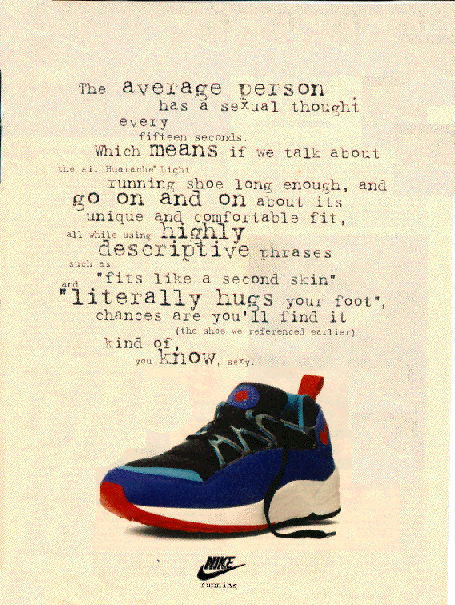 The average person
has a sexual thought
every
fifteen seconds.
Which means if we talk about
the Air Huarache Light
running shoe long enough, and
go on and on about its
unique and comfortable fit,
all while using highly
descriptive phrases
such as
"fits like a second skin"
and
"literally hugs your foot",
chances are you'll find it
(the shoe we referenced earlier)
kind of,
you know, sexy.
NIKE
running